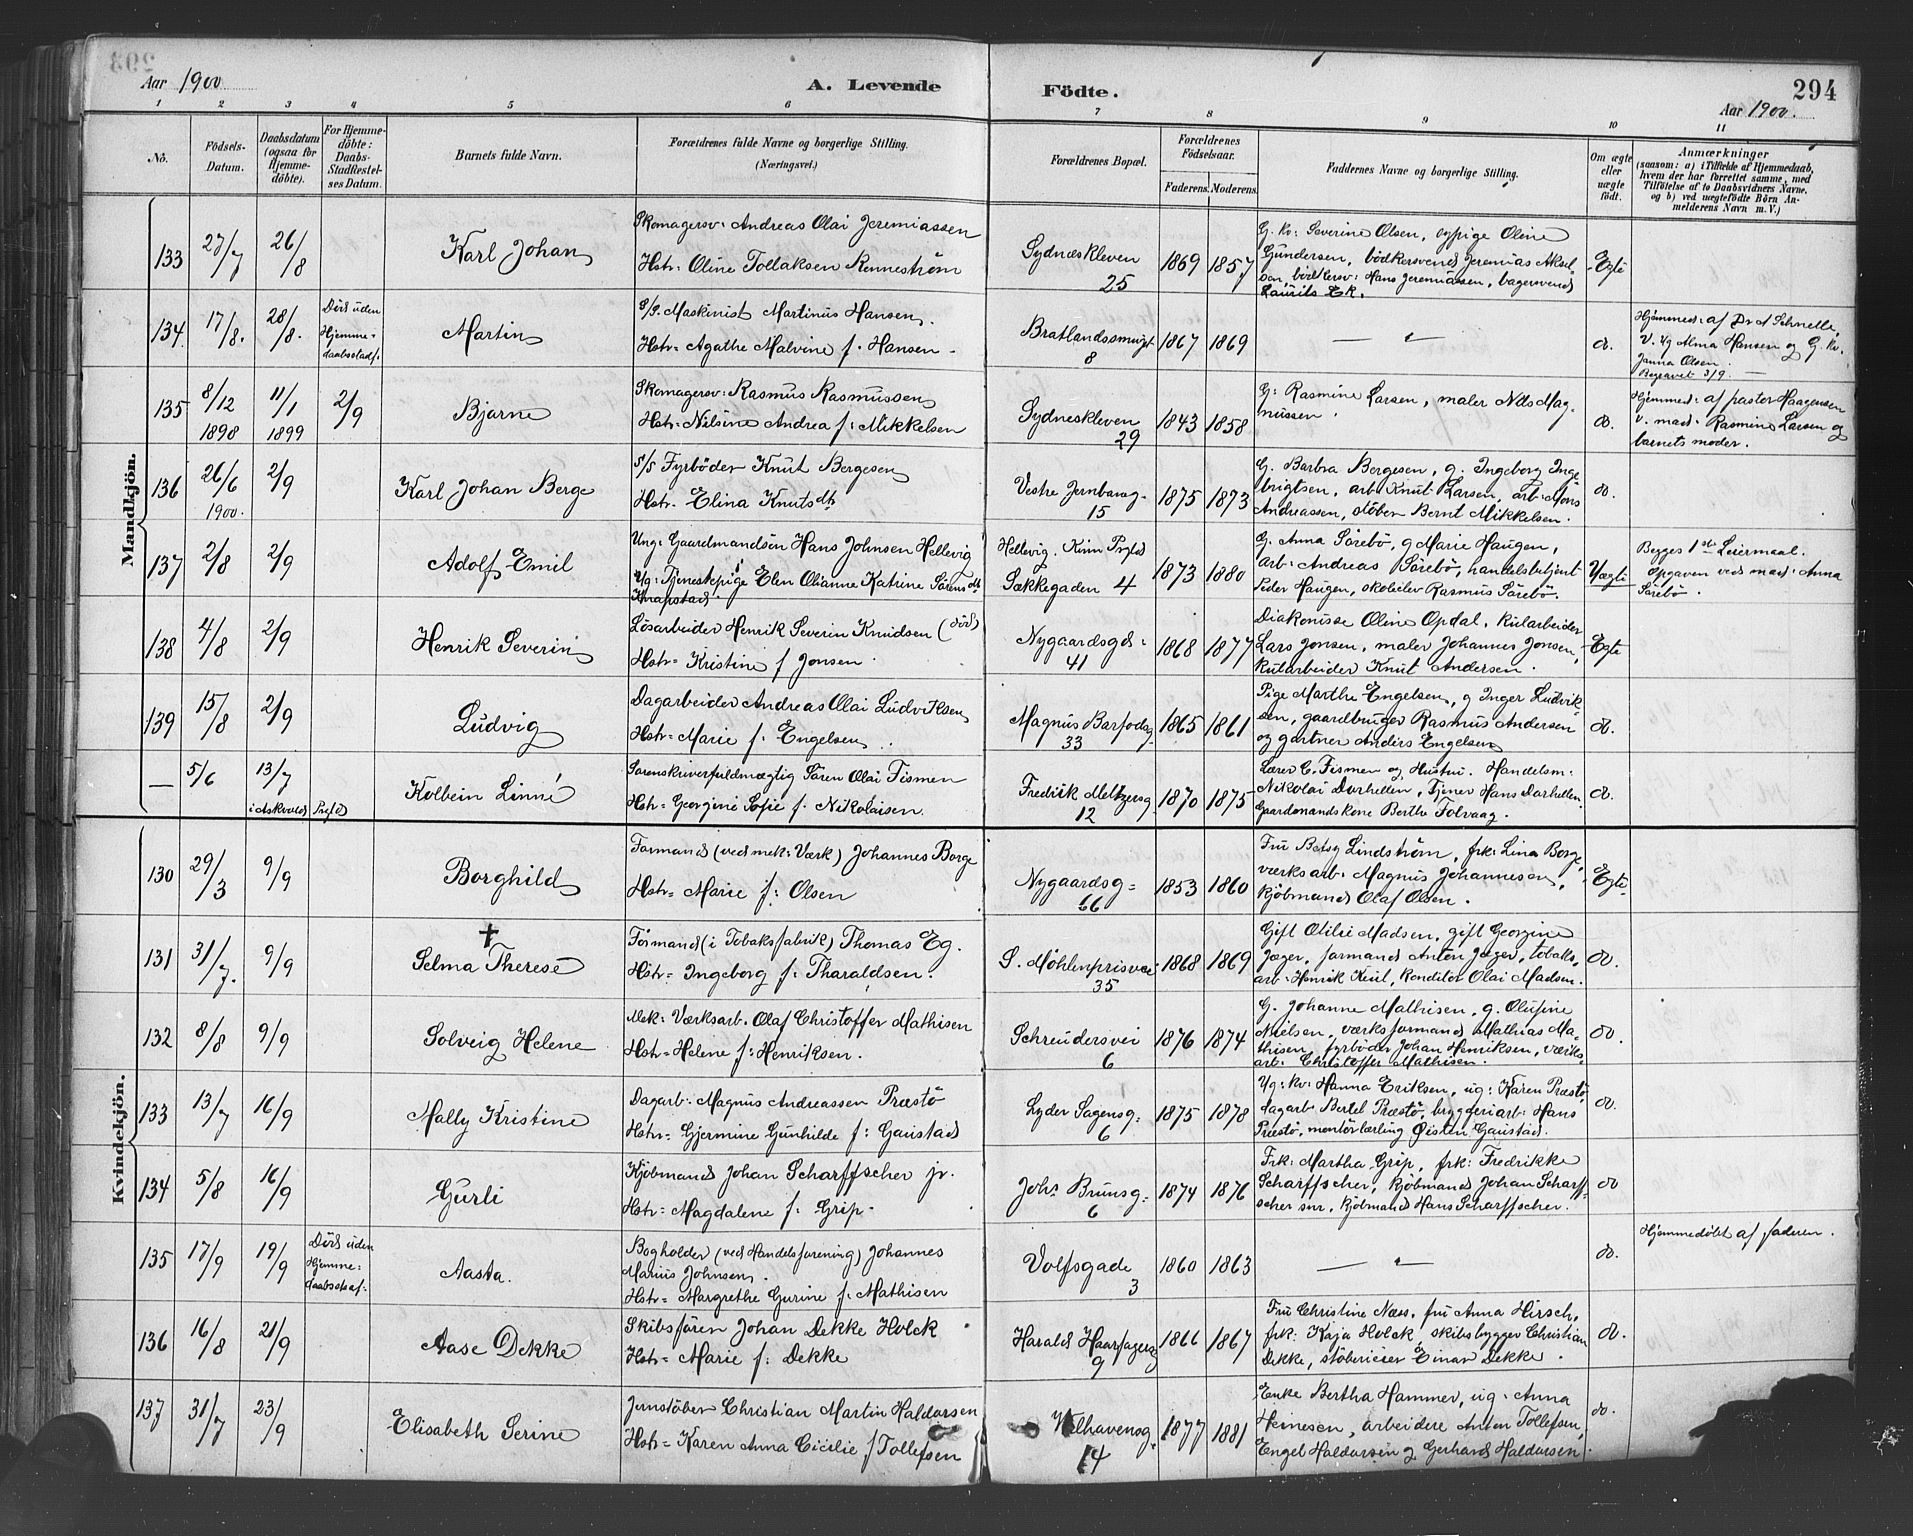 293
Aar 1900
A. Levende Födte.
294
Aar 1900.
1 2 3 4 5 6 7 8 9 10 11
No.
Födsels-Datum.
Daabsdatum (ogsaa for Hjemme-döbte).
For Hjemme-döbte: Daabs-Stadfestel-ses Datum.
Barnets fulde Navn.
Forældrenes fulde Navne og borgerlige Stilling. (Næringsvei.)
Forældrenes Bopæl.
Forældrenes Födselsaar.
Faderens. Moderens.
Faddernes Navne og borgerlige Stilling.
Om ægte eller uægte födt.
Anmærkninger
(saasom: a) i Tilfælde af Hjemmedaab,
hvem der har forrettet samme, med
Tilföielse af to Daabsvidners Navne.
og b) ved uægtefödte Börn An-
melderens Navn m. V.)
Mandkjön.
133 27/7 26/8 Karl Johan
Skomagersv: Andreas Olai Jeremiassen
Hstr: Oline Tollaksen Renneström
Sydneskleven 25 1869 1857
G. kv: Severine Olsen, sypige Oline
Gundersen, bödkersvend Jeremias Aksel-
sen, bödkersv: Hans Jeremiassen, bagersvend
Laurits Ek.
Egte
134. 17/8. 28/8. Död uden Hjemme-daabsstadf. Martin
S/S. Maskinist Martinus Hansen.
Hstr= Agathe Malvine f. Hansen -
Bratlandssmuget 8 1867 1869
— " —
do.
Hjemmed: af Dr A Schnelle,
V. ug Alma Hansen og G. kv.
Janna Olsen.
Begravet 3/9. —
135 8/12 1898 11/1 1899 2/9 Bjarne
Skomagersv: Rasmus Rasmussen
Hstr: Nilsine Andrea f: Mikkelsen
Sydneskleven 29 1843 1858
G: Rasmine Larsen, maler Nils Mag-
nussen.
do.
Hjemmed: af pastor Haagensen
v. mad: Rasmine Larsen og
barnets moder.
136 26/6 1900. 2/9 Karl Johan Berge
S/S Fyrböder Knut Bergesen
Hstr. Elina Knutsdtr
Vestre Jernbaneg. 15 1875 1873
G. Barbra Bergesen, g. Ingeborg Inge-
brigtsen, arb: Knut Larsen, arb: Mons
Andreassen, stöber Bernt Mikkelsen.
do.
137 2/8 2/9 Adolf Emil
Ung: Gaardmandsön Hans Johnsen Hellevig
Ug: Tjenestepige Elen Olianne Katrine Sörensdtr
Knapstad.
Hellevig. Kinn Prgld
Sækkegaden 4 1873 1880
G. Anna Sörebö, g Marie Haugen,
arb: Andreas Sörebö, handelsbetjent
Peder Haugen, skoleelev Rasmus Sörebö.
Uægte
Begges 1ste Leiermaal.
Opgaven ved mad: Anna
Sörebö.
138 4/8 2/9 Henrik Severin
Lösarbeider Henrik Severin Knudsen (död)
Hstr= Kristine f Jonsen.
Nygaardsgd: 41 1868 1877
Diakonisse Oline Opdal, kularbeider
Lars Jonsen, maler Johannes Jonsen,
kularbeider Knut Andersen.
Egte
139 15/8 2/9 Ludvig
Dagarbeider Andreas Olai Ludviksen
Hstr= Marie f: Engelsen.
Magnus Barfodsg. 33 1865 1861
Pige Marthe Engelsen, g Inger Ludvik-
sen, gaardbruger Rasmus Andersen
og gartner Anders Engelsen
do.
— 5/6 13/7 i Askvold Prgld Kolbein Linné
Sorenskriverfuldmægtig Sören Olai Fismen
Hstr= Georgine Sofie f. Nikolaisen.
Fredrik Meltzersg. 12 1870 1875
Lærer E. Fismen og Hustru. Handelsm:
Nikolai Darhellen, Tjener Hans Darhellen
Gaardmandskone Berthe Folvaag.
do.
Kvindekjön.
130 29/3 9/9 Borghild
Formand (ved mek: Værk) Johannes Borge
Hstr= Marie f: Olsen
Nygaardsg= 66 1853 1860
Fru Betsy Lindström, frk: Lina Borge,
værksarb: Magnus Johannesen,
kjöbmand Olaf Olsen.
Egte
131 31/7. 9/9 † Selma Therese
Formand (i Tobaksfabrik) Thomas Eg.
Hstr= Ingeborg f: Tharaldsen.
S. Möhlenprisvei 35 1868 1869
Gift Otilie Madsen, gift Georgine
Jæger, formand Anton Jæger, tobaks-
arb: Henrik Keil, konditor Olai Madsen.
do.
132 8/8 9/9 Solveig Helene
Mek: Værksarb. Olaf Christoffer Mathisen
Hstr= Helene f: Henriksen.
Schreudersvei 6 1876 1874
G. Johanne Mathisen, g. Olufine
Nielsen, værksformand Mathias Ma-
thisen, fyrböder Johan Henriksen, værks-
arb: Christoffer Mathisen.
do.
133 13/7 16/9 Mally Kristine
Dagarb: Magnus Andreassen Præstö
Hstr: Gjermine Gunhilde f: Gaustad
Lyder Sagensg: 6 1875 1878
Ug: kv: Hanna Eriksen, ug: Karen Præstö,
dagarb Bertel Præstö, bryggeriarb: Hans
Præstö, montörlærling Öisten Gaustad.
do.
134 5/8 16/9 Gurli
Kjöbmand Johan Scharffscher jr.
Hstr= Magdalene f: Grip.
Johs Brunsg: 6 1874 1876
Frk: Martha Grip, frk: Fredrikke
Scharffscher, kjöbmand Johan Scharff-
scher snr, kjöbmand Hans Scharffscher.
do
135 17/9 19/9 Död uden Hjemme-daabsstaf. Aasta.
Bogholder (ved Handelsforening) Johannes
Marius Johnsen.
Hstr= Margrethe Gurine f: Mathisen
Volfsgade 3 1860 1863
— " —
do.
Hjemmedöbt af faderen.
136 16/8 21/9 Aase Dekke
Skibsförer Johan Dekke Holck
Hstr= Marie f: Dekke
Harald Haarfagersg 9 1866 1867
Fru Christine Næss, fru Anna Hirsch,
frk: Kaja Holck, skibsbygger Christian
Dekke, stöberieier Einar Dekke.
do.
137 31/7 23/9 Elisabeth Serine
Jernstöber Christian Martin Haldorsen
Hstr= Karen Anna Cicilie f Tollefsen
Welhavensg. 14 1877 1881
Enke Bertha Hammer, ug: Anna
Heinesen, arbeidere Anton Tollefsen,
Engel Haldorsen og Gerhard Haldorsen.
do.